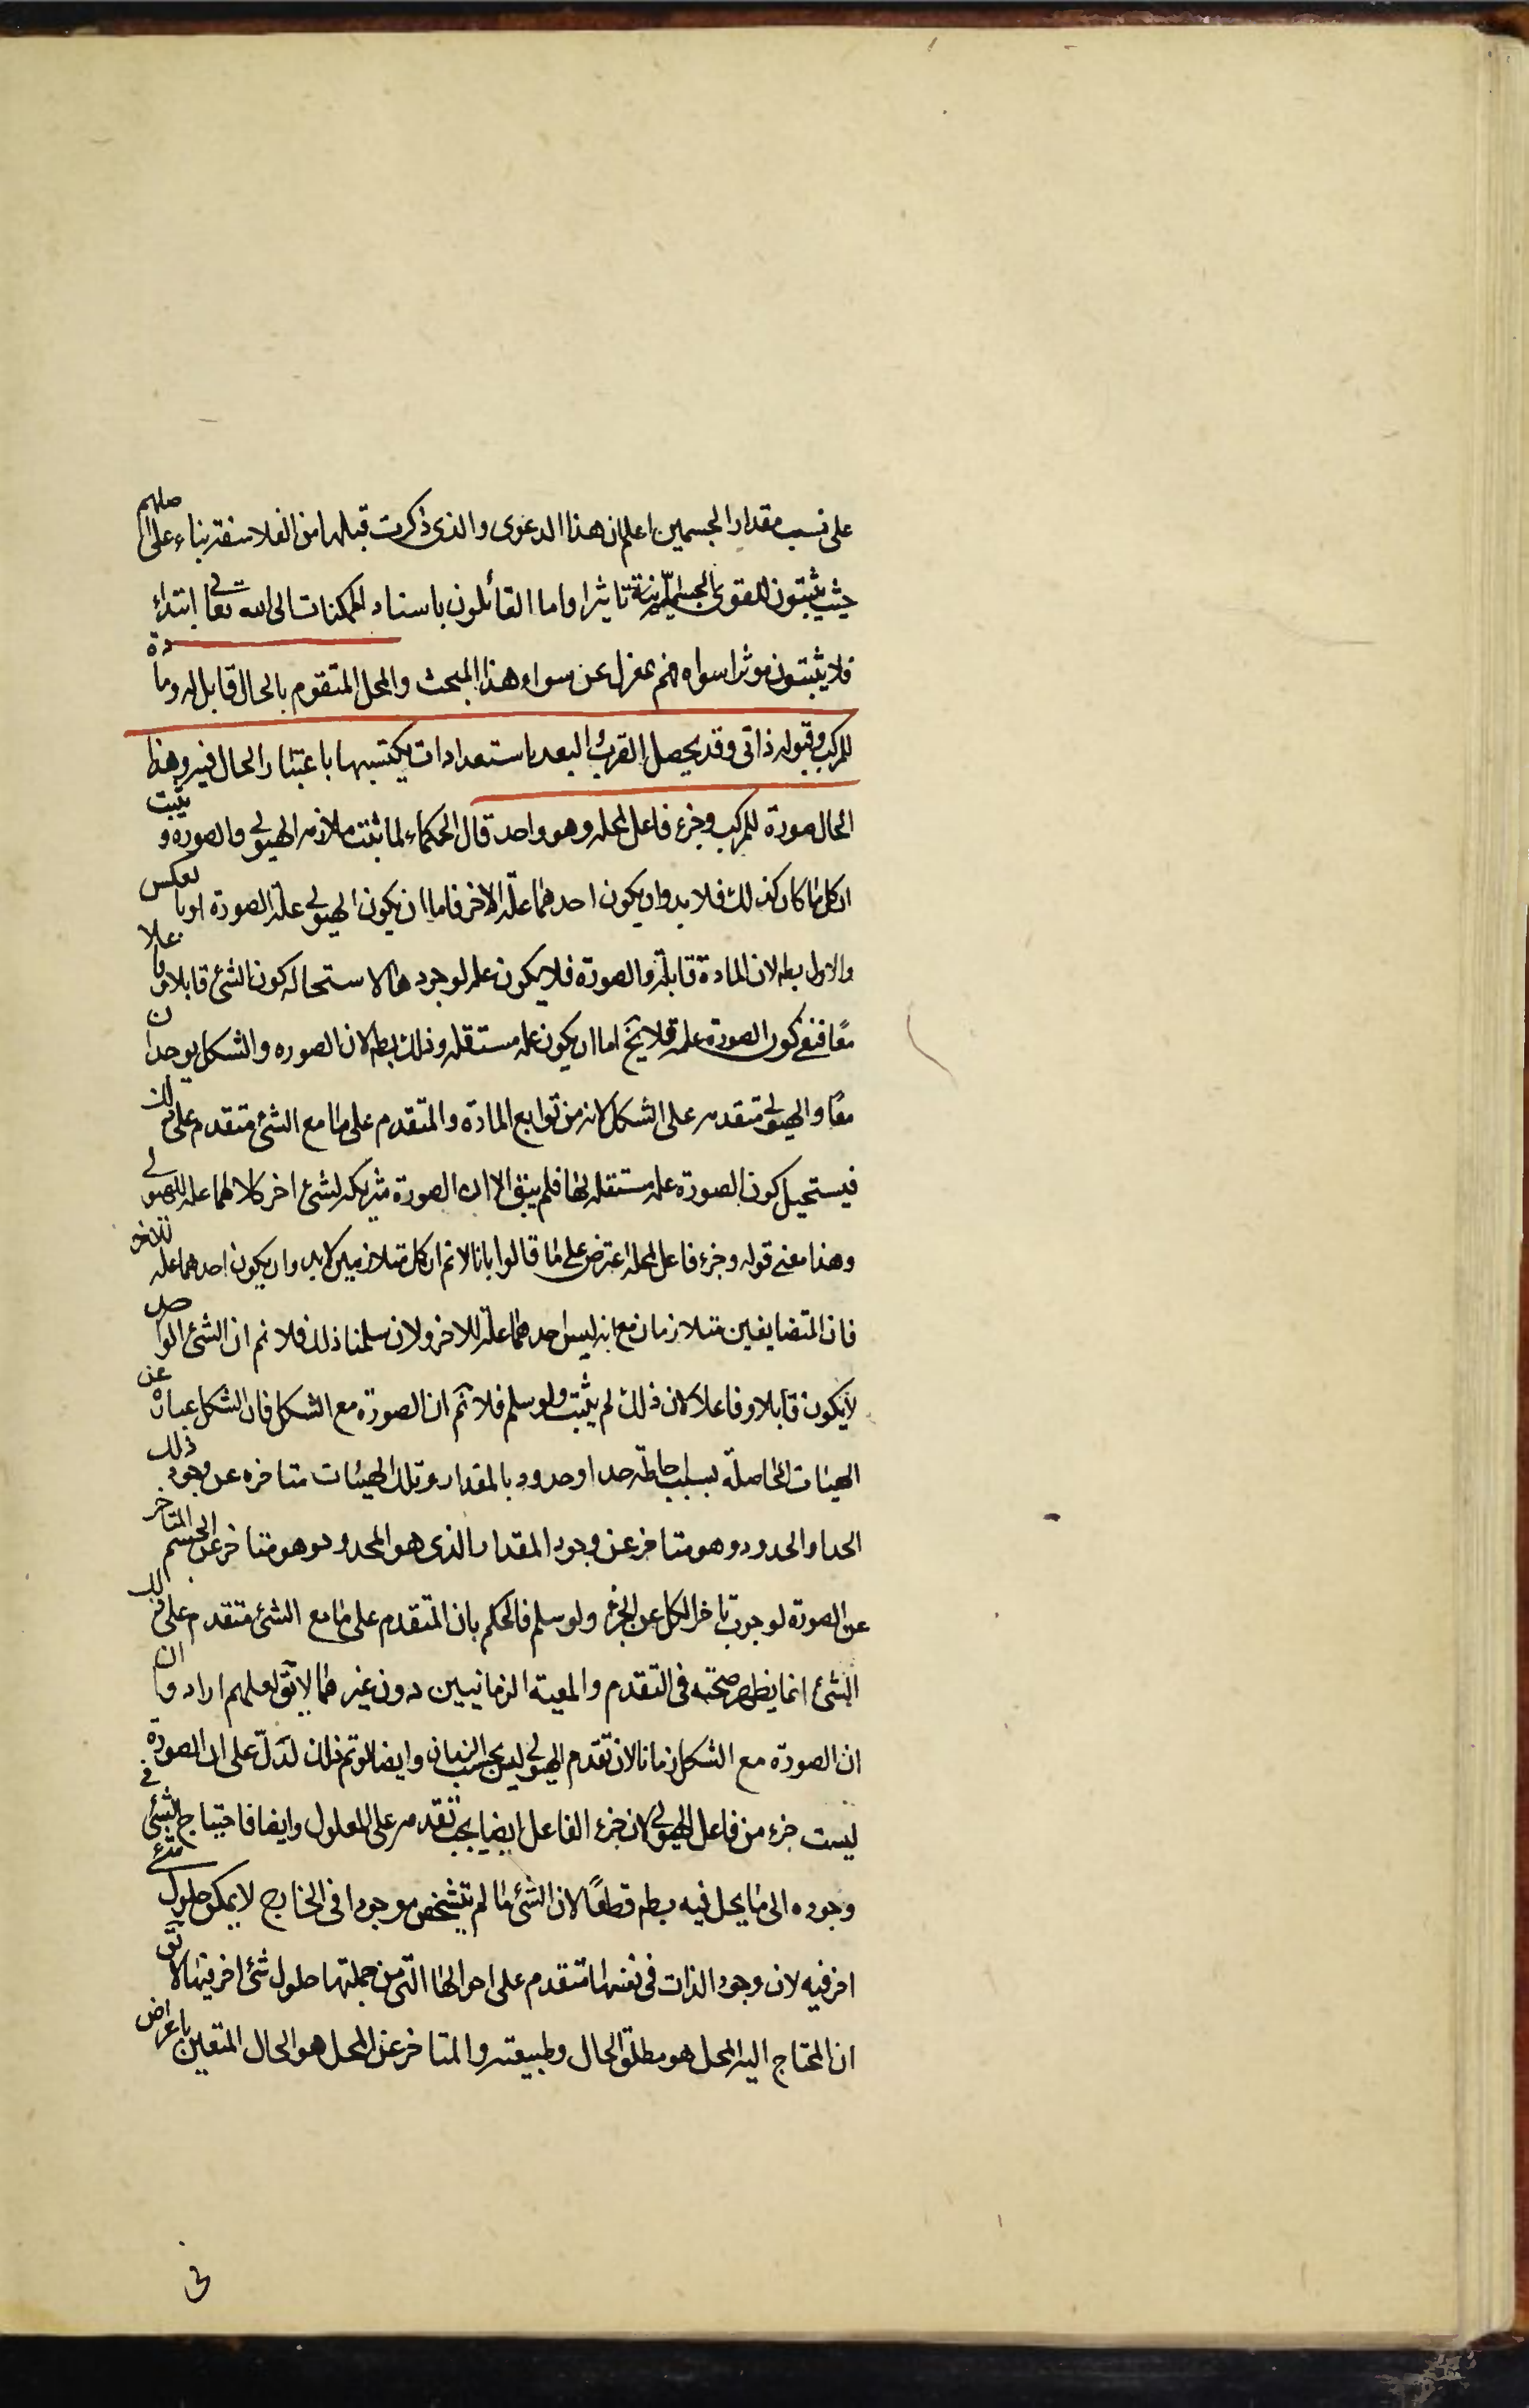 على نسب مقدار الجسمين اعلم ان هذا الدعوى والذى ذكرت قبلها من الفلاسفة بناء على اصلهم
حيث يثبتون للقوى الجسمانية تاثيرا واما القائلون باسناد الممكنات الى الله تعالى ابتداء
فلا يثبتون موثرا سواه فهم بمعزل عن سواء هذا المبحث والمحل المتقوم بالحال قابل له ومادة
للمركب وقبوله ذاتى وقد يحصل القرب والبعد باستعدادات يكتسبها باعتبار الحال فيه وهذا
الحال صورة للمركب وجزء فاعل لمحله وهو واحد قال الحكماء لما ثبت ملازمه الهيولى والصورة و يثبت
ان كل ما كان كذلك فلا بد وان يكون احدهما علة الاخر فاما ان يكون الهيولى علة الصورة او بالعكس
والاول بط لان المادة قابلة والصورة فلا يكون علة لوجودها لاستحاله كون الشئ قابلا وفاعلا
معًا فبقى كون الصورة علة فلا يخ اما ان يكون علة مستقله وذلك بط لان الصوره والشكل يوجدان
معًا والهيولى متقدمه على الشكل لانه من توابع المادة والمتقدم على ما مع الشئ متقدم على ذلك
فيستحيل كون الصورة علة مستقله لها فلم يبق الا ان الصورة شريكه لشئ اخر كلاهما علة للهيولى
وهذا معنى قوله وجزء فاعل لمحله اعترض على ما قالوا بانا لا نم ان كل متلازمين لا بد وان يكون احدهما علة للاخر
فان المتضايفين متلازمان مع انه ليس احدهما علة للاخر ولان سلمنا ذلك فلا نم ان الشئ الواحد
لا يكون قابلا وفاعلا لان ذلك لم يثبت ولو سلم فلا نم ان الصورة مع الشكل فان الشكل عبارة عن
الهيئات الحاصلة بسبب احاطة حد او حدود بالمقدار وتلك الهيئات متاخره عن وجود ذلك
الحد او الحدود وهو متاخر عن وجود المقدار الذى هو المحدود وهو متاخر عن الجسم المتاخر
عن الصورة لوجوب تاخر الكل عن الجزء ولو سلم فالحكم بان المتقدم على ما مع الشئ متقدم على ذلك
الشئ انما يظهر صحته فى التقدم والمعية الزمانيين دون غيرهما لا يق لعلهم ارادوا ان
ان الصورة مع الشكل زمانا لان تقدم الهيولى ليس بحسب الزمان وايضا لو تم ذلك لدَلّ على ان الصورة
ليست جزء من فاعل الهيولى لان جزء الفاعل ايضا يجب تقدمه على المعلول وايضا فاحتياج الشئ فى
وجوده الى ما يحل فيه بط قطعًا لان الشئ ما لم يتشخص موجودا فى الخارج لا يمكن حلول شئ
اخر فيه لان وجود الذات فى نفسها متقدم على احوالها التى من جملتها حلول شئ اخر فيها لا يق
ان المحتاج اليه المحل هو مطلق الحال وطبيعته والمتاخر عن المحل هو الحال المتعين باعراض